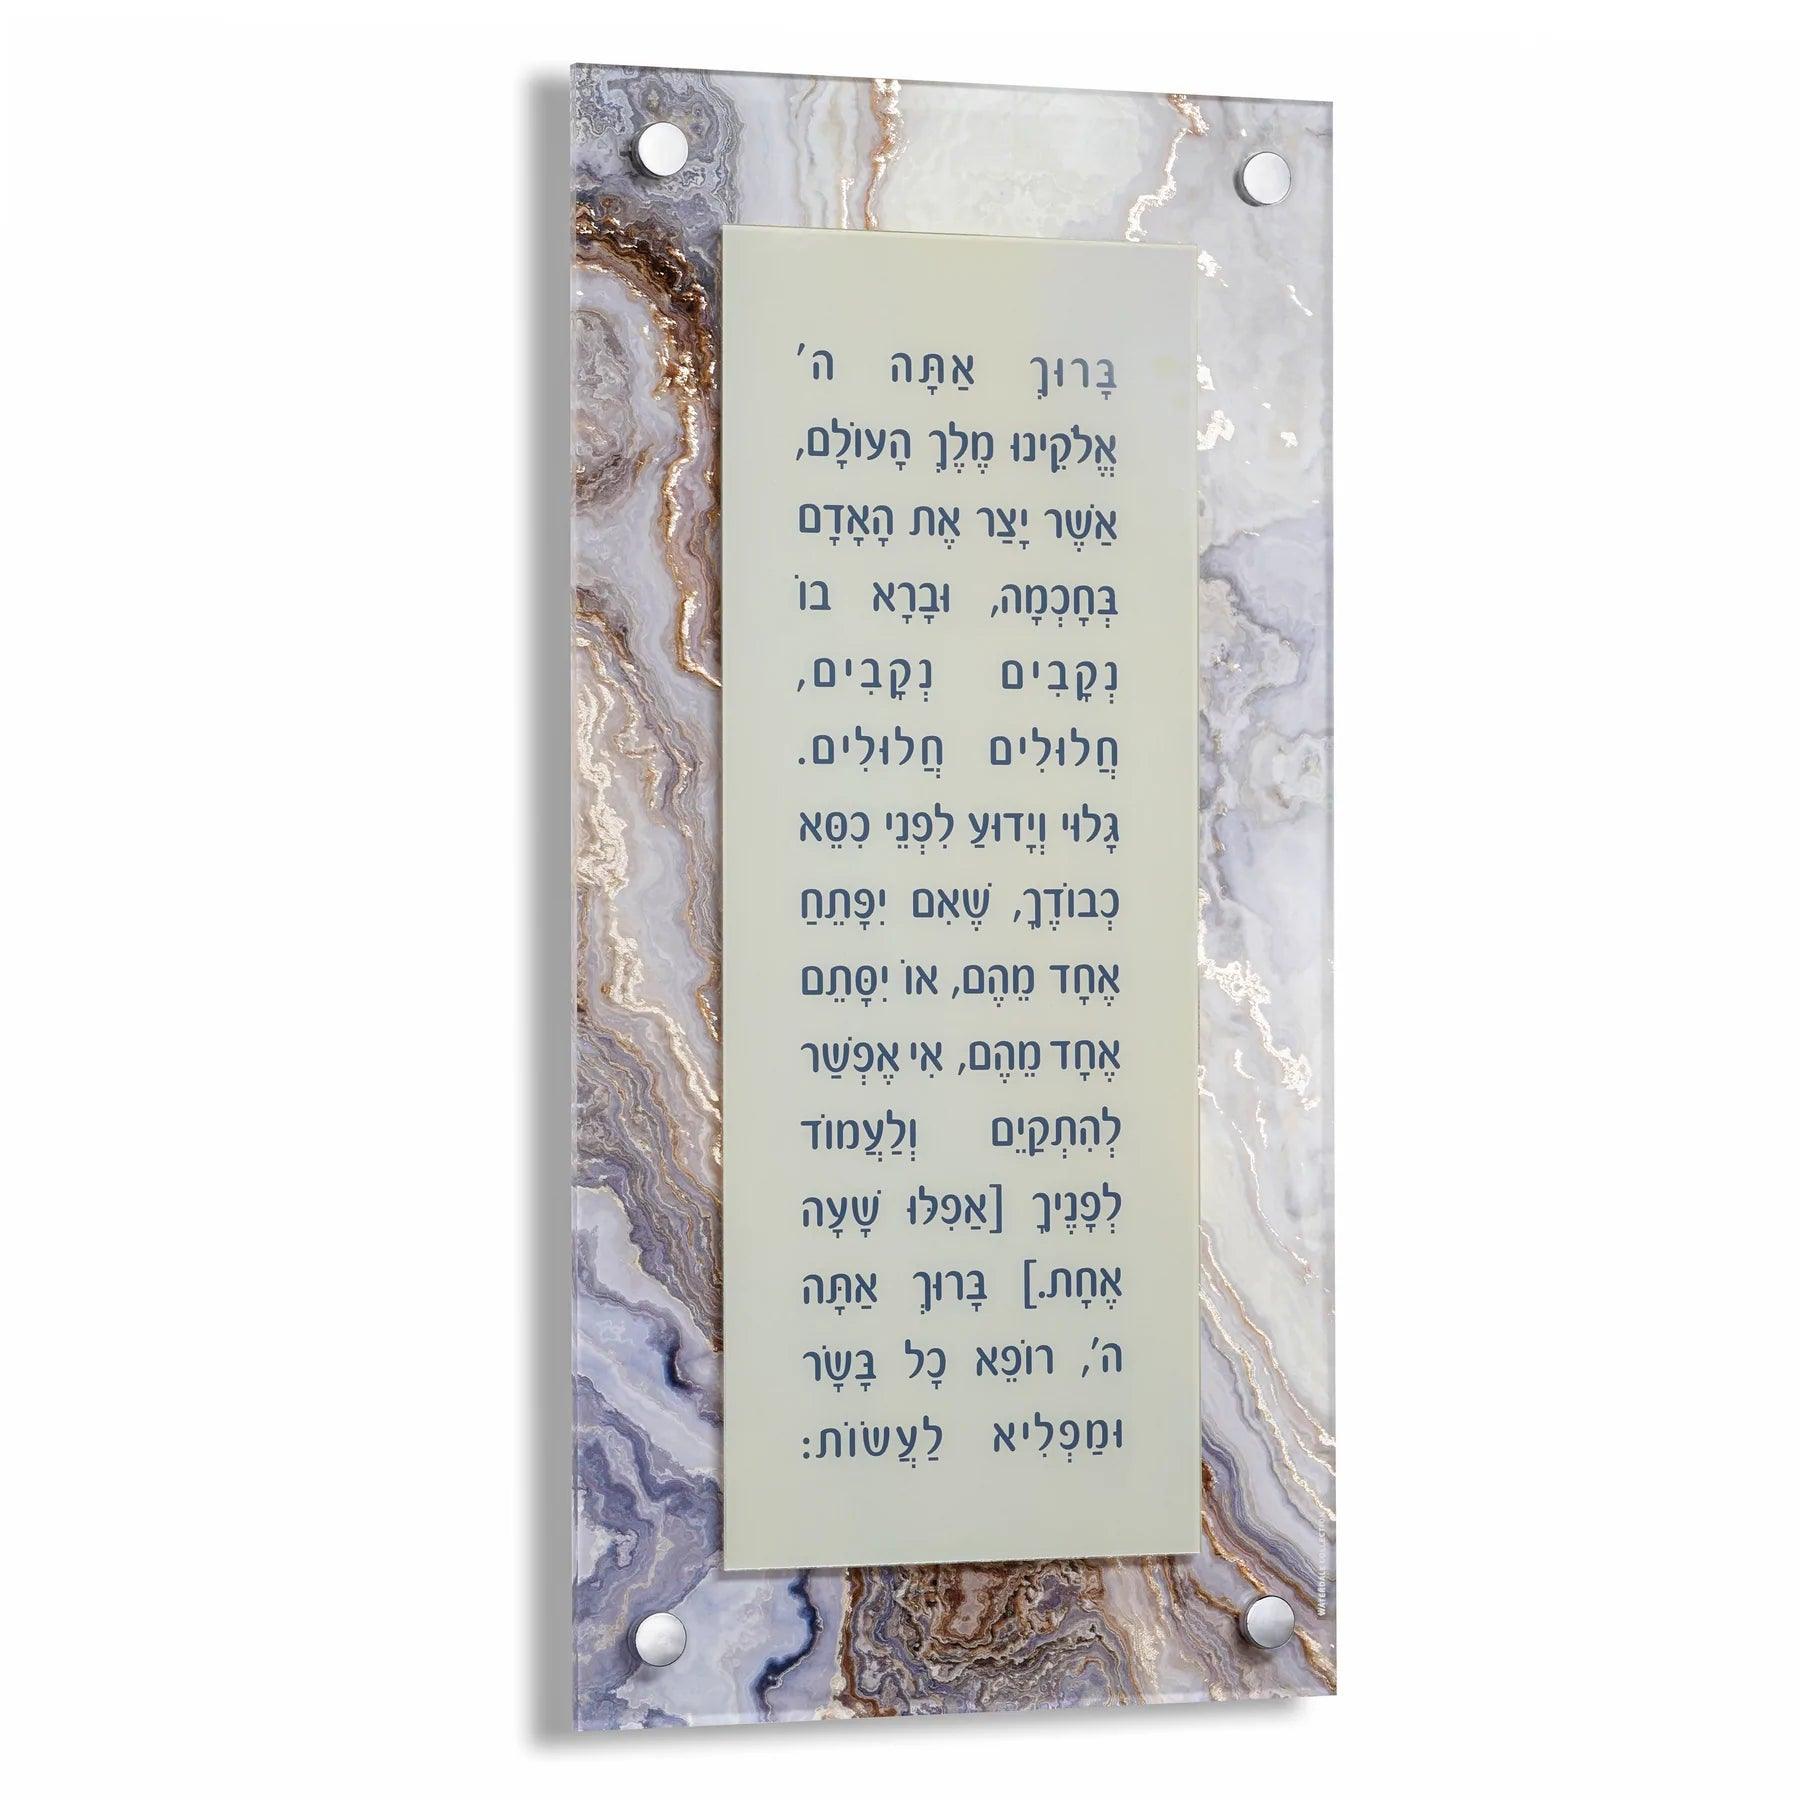 בָּרוּךְ אַתָּה ה'
אֱלֹקֵינוּ מֶלֶךְ הָעוֹלָם,
אַשֶׁר יָצַר אֶת הָאָדָם
בְּחָכְמָה, וּבָרָא בוֹ
נְקָבִים נְקָבִים,
חֲלוּלִים חֲלוּלִים.
גָּלוּי וְיָדוּעַ לִפְנֵי כִסֵּא
כְבוֹדֶךָ, שֶׁאִם יִפָּתֵחַ
אֶחָד מֵהֶם, אוֹ יִסָּתֵם
אֶחָד מֵהֶם, אִי אֶפְשַׁר
לְהִתְקַיֵּם וְלַעֲמוֹד
לְפָנֶיךָ [אַפִלּוּ שָׁעָה
אֶחָת.] בָּרוּךְ אַתָּה
ה', רוֹפֵא כָל בָּשָׂר
וּמַפְלִיא לַעֲשׂוֹת:
WATERDALE COLLECTION